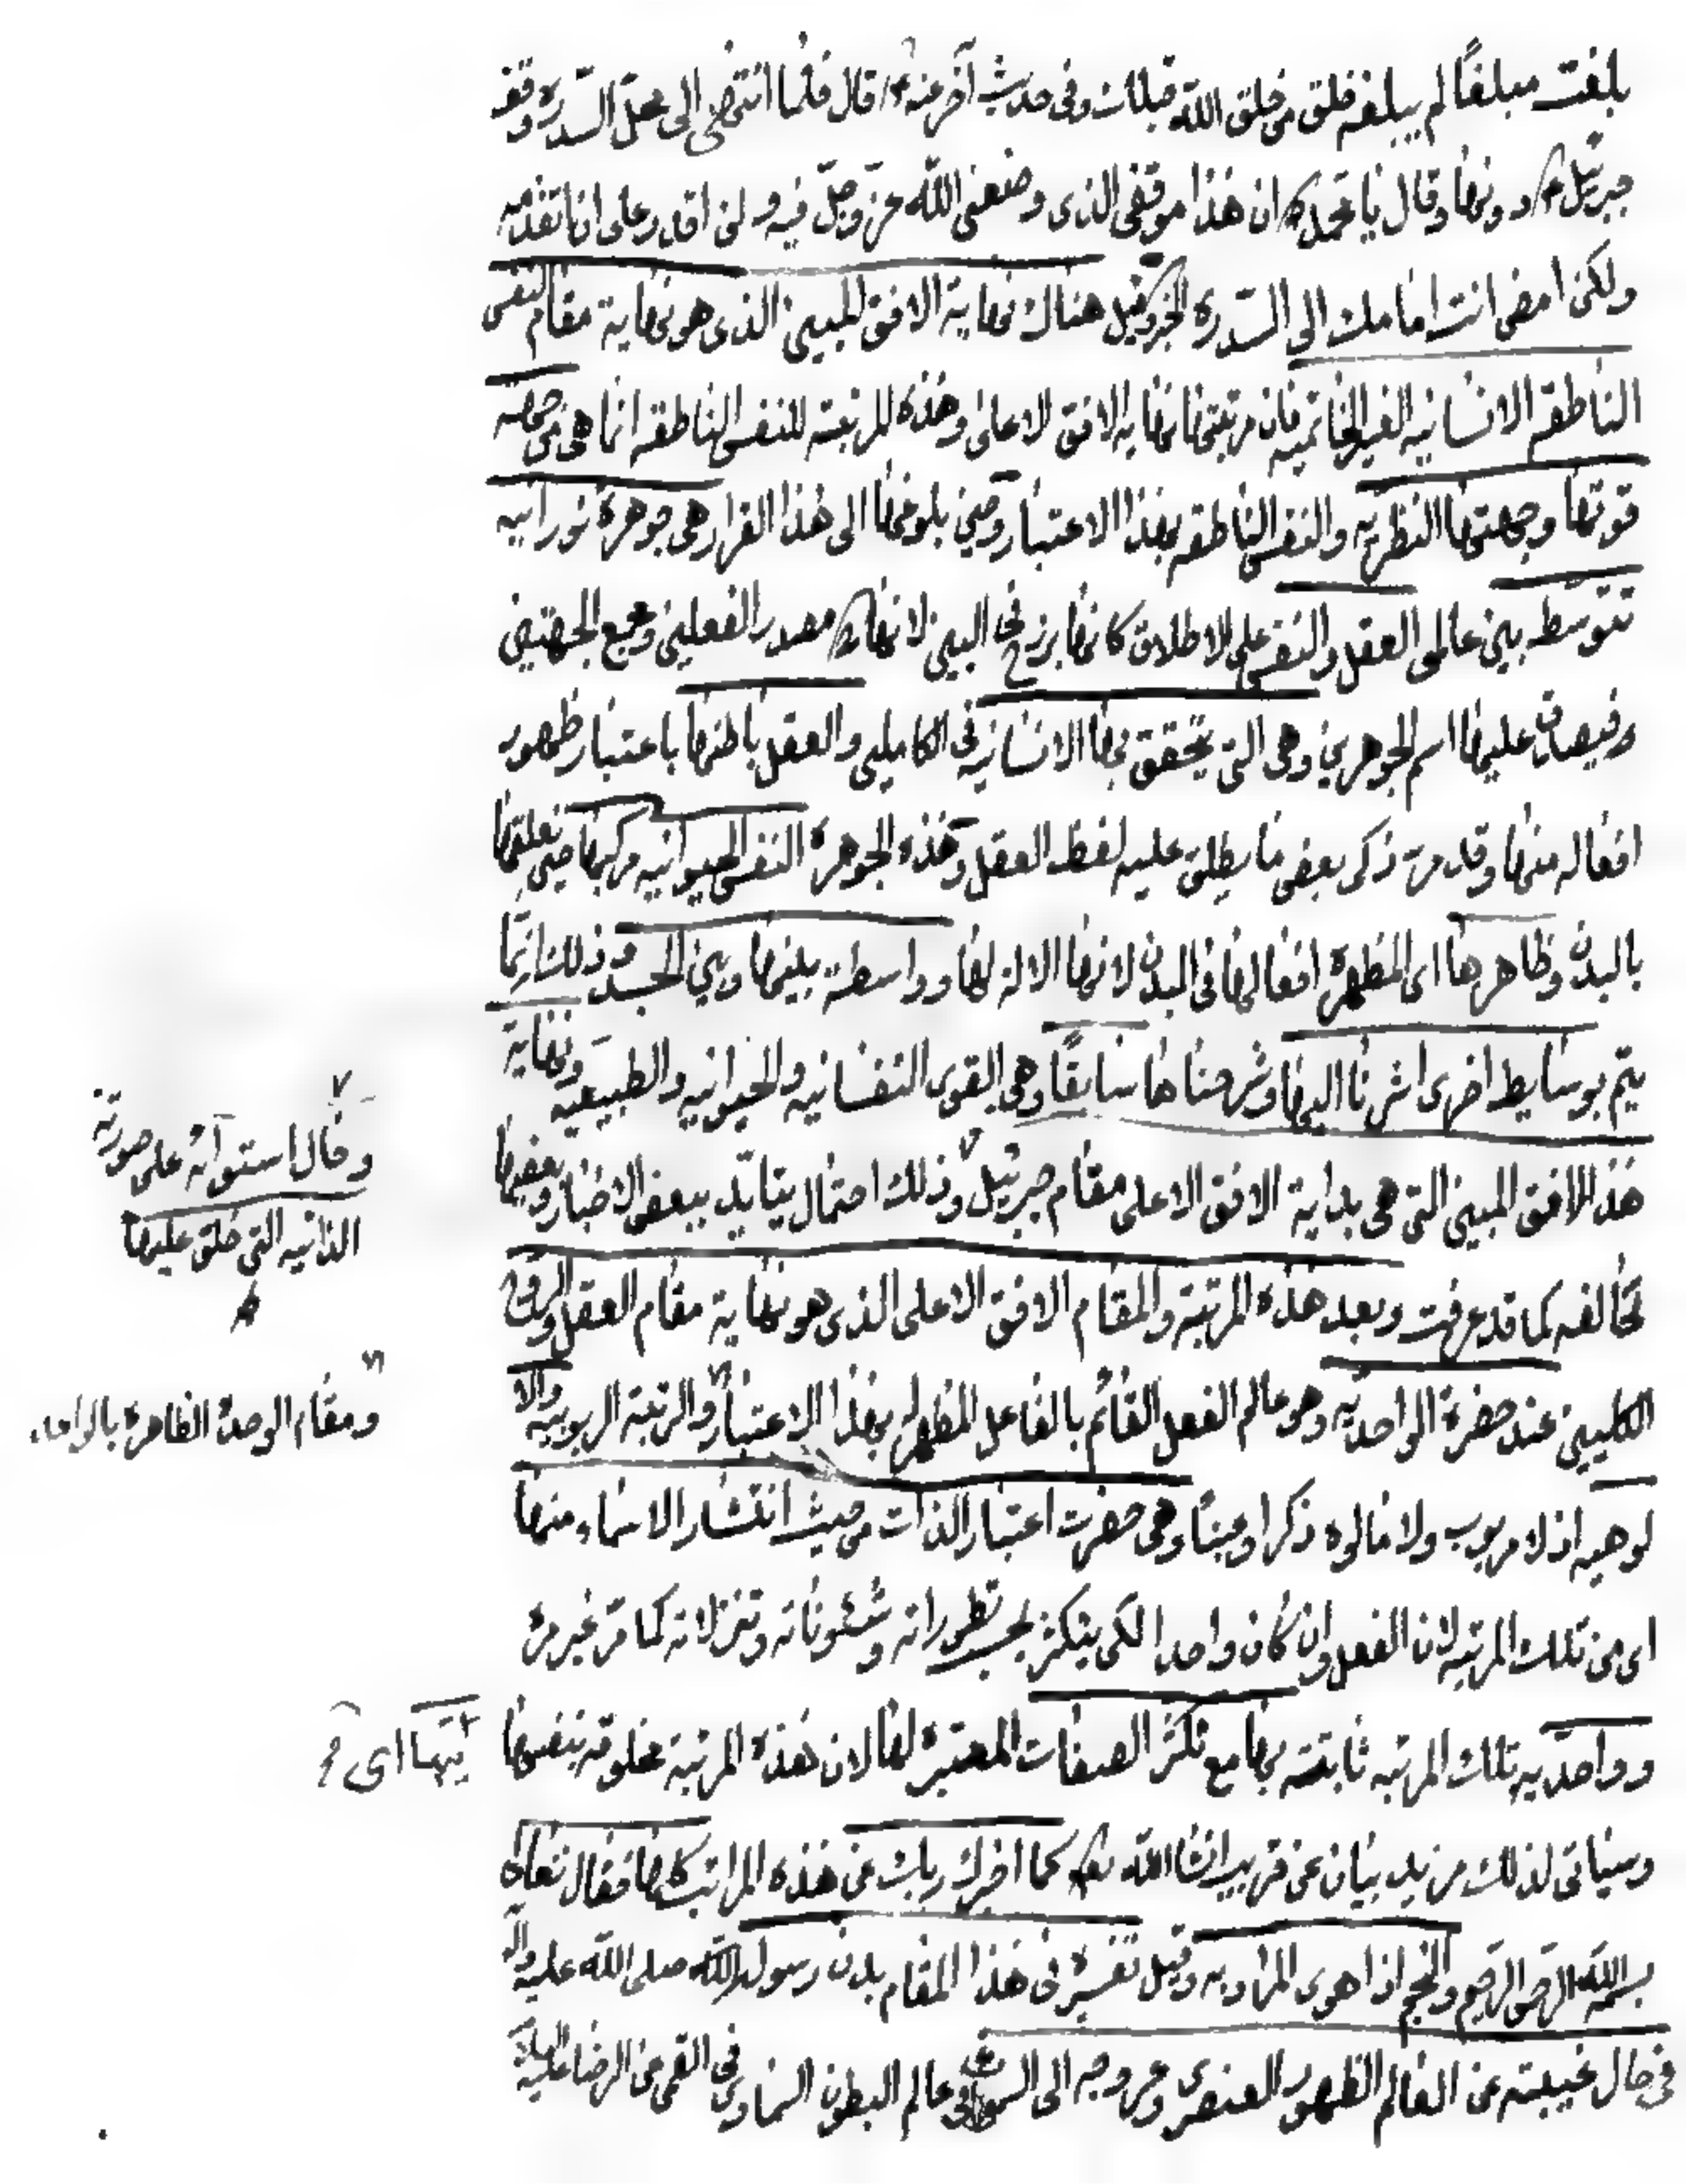 بلغت مبلغًا لم يبلغه خلق من خلق الله قبلك وفى حديث آخر عنه ع قال فلما انتهى الى محل السدرة وقف
جبرئيل ع دونها وقال يا محمد ص ان هذا موقفى الذى وضعنى الله عز وجل فيه ولن اقدر على ان اتقدمه
ولكن امض انت امامك الى السدرة الخ وقيل هناك نهاية الافق المبين الذى هو نهاية مقام النفس
الناطقه الانسانيه الغير الخاتميه فان مرتبتها نهايه الافق الاعلى وهذه المرتبة للنفس الناطقه انما هى من جهة
قوتها وجهتها النظريه والنفس الناطقه بهذا الاعتبار وحين بلوغها الى هذا القرار هى جوهرة نورانيه
تتوسط بين عالمى العقل والنفس على الاطلاق كانها برزخ فى البين لانها مصدر الفعلين ومجمع الجهتين
فيصدق عليها اسم الجوهرين وهى التى يتحقق بها الانسانيه فى الكاملين والعقل باطنها باعتبار ظهور
افعاله منها وقد مر ذكر بعض ما يطلق عليه لفظ العقل وهذه الجوهرة النفس الحيوانيه مركبها حين تعلقها
بالبدن وظاهرها اى المظهرة افعالها فى البدن لانها الالة لها وواسطة بينها وبين الجسد وذلك انما
يتم بوسايط اخرى اشرنا اليها وشرحناها سابقًا وهى القوى النفسانيه والحيوانيه والطبيعيه ونهاية
هذا الافق المبين التى هى بداية الافق الاعلى مقام جبرئيل وذلك احتمال يتايد ببعض الاخبار وبعضها
تخالفه كما قد عرفت وبعد هذه المرتبة والمقام الافق الاعلى الذى هو نهاية مقام العقل والروح
الكليين عند حضرة الواحديه وهو عالم الفعل القائم بالفاعل المظهر له بهذا الاعتبار والرتبة الربوبيه والا
لوهيه اذ لا مربوب ولا مالوه ذكرا وعينًا وهى حضرت اعتبار الذات من حيث انتشار الاسماء منها
اى من تلك المرتبه لان الفعل وان كان واحدا لكن يتكثر بحسب تطوراته وشئوناته وتنزلاته كما مر غير مرة
وواحديه تلك المرتبه ثابته بها مع تكثر الصفات المعتبرة لها لان هذه المرتبة مخلوقه بنفسها
وسياتى لذلك مزيد بيان عن قريب انشاالله تع كما اخبرك ربك عن هذه المراتب كلها فقال تعالى
بسم الله الرحمن الرحيم والنجم اذا هوى المراد به وقيل تفسيره فى هذا المقام بدن رسول الله صلى الله عليه واله
فى حال غيبته عن العالم الظهور العنصرى وعروجه الى السموات فى عالم البطون السماوى فى القمى عن الرضا عليه السلام
وحال استوآئه على صورته
الذاتيه التى خلق عليها
ومقام الوحدة الظاهرة بالواحد